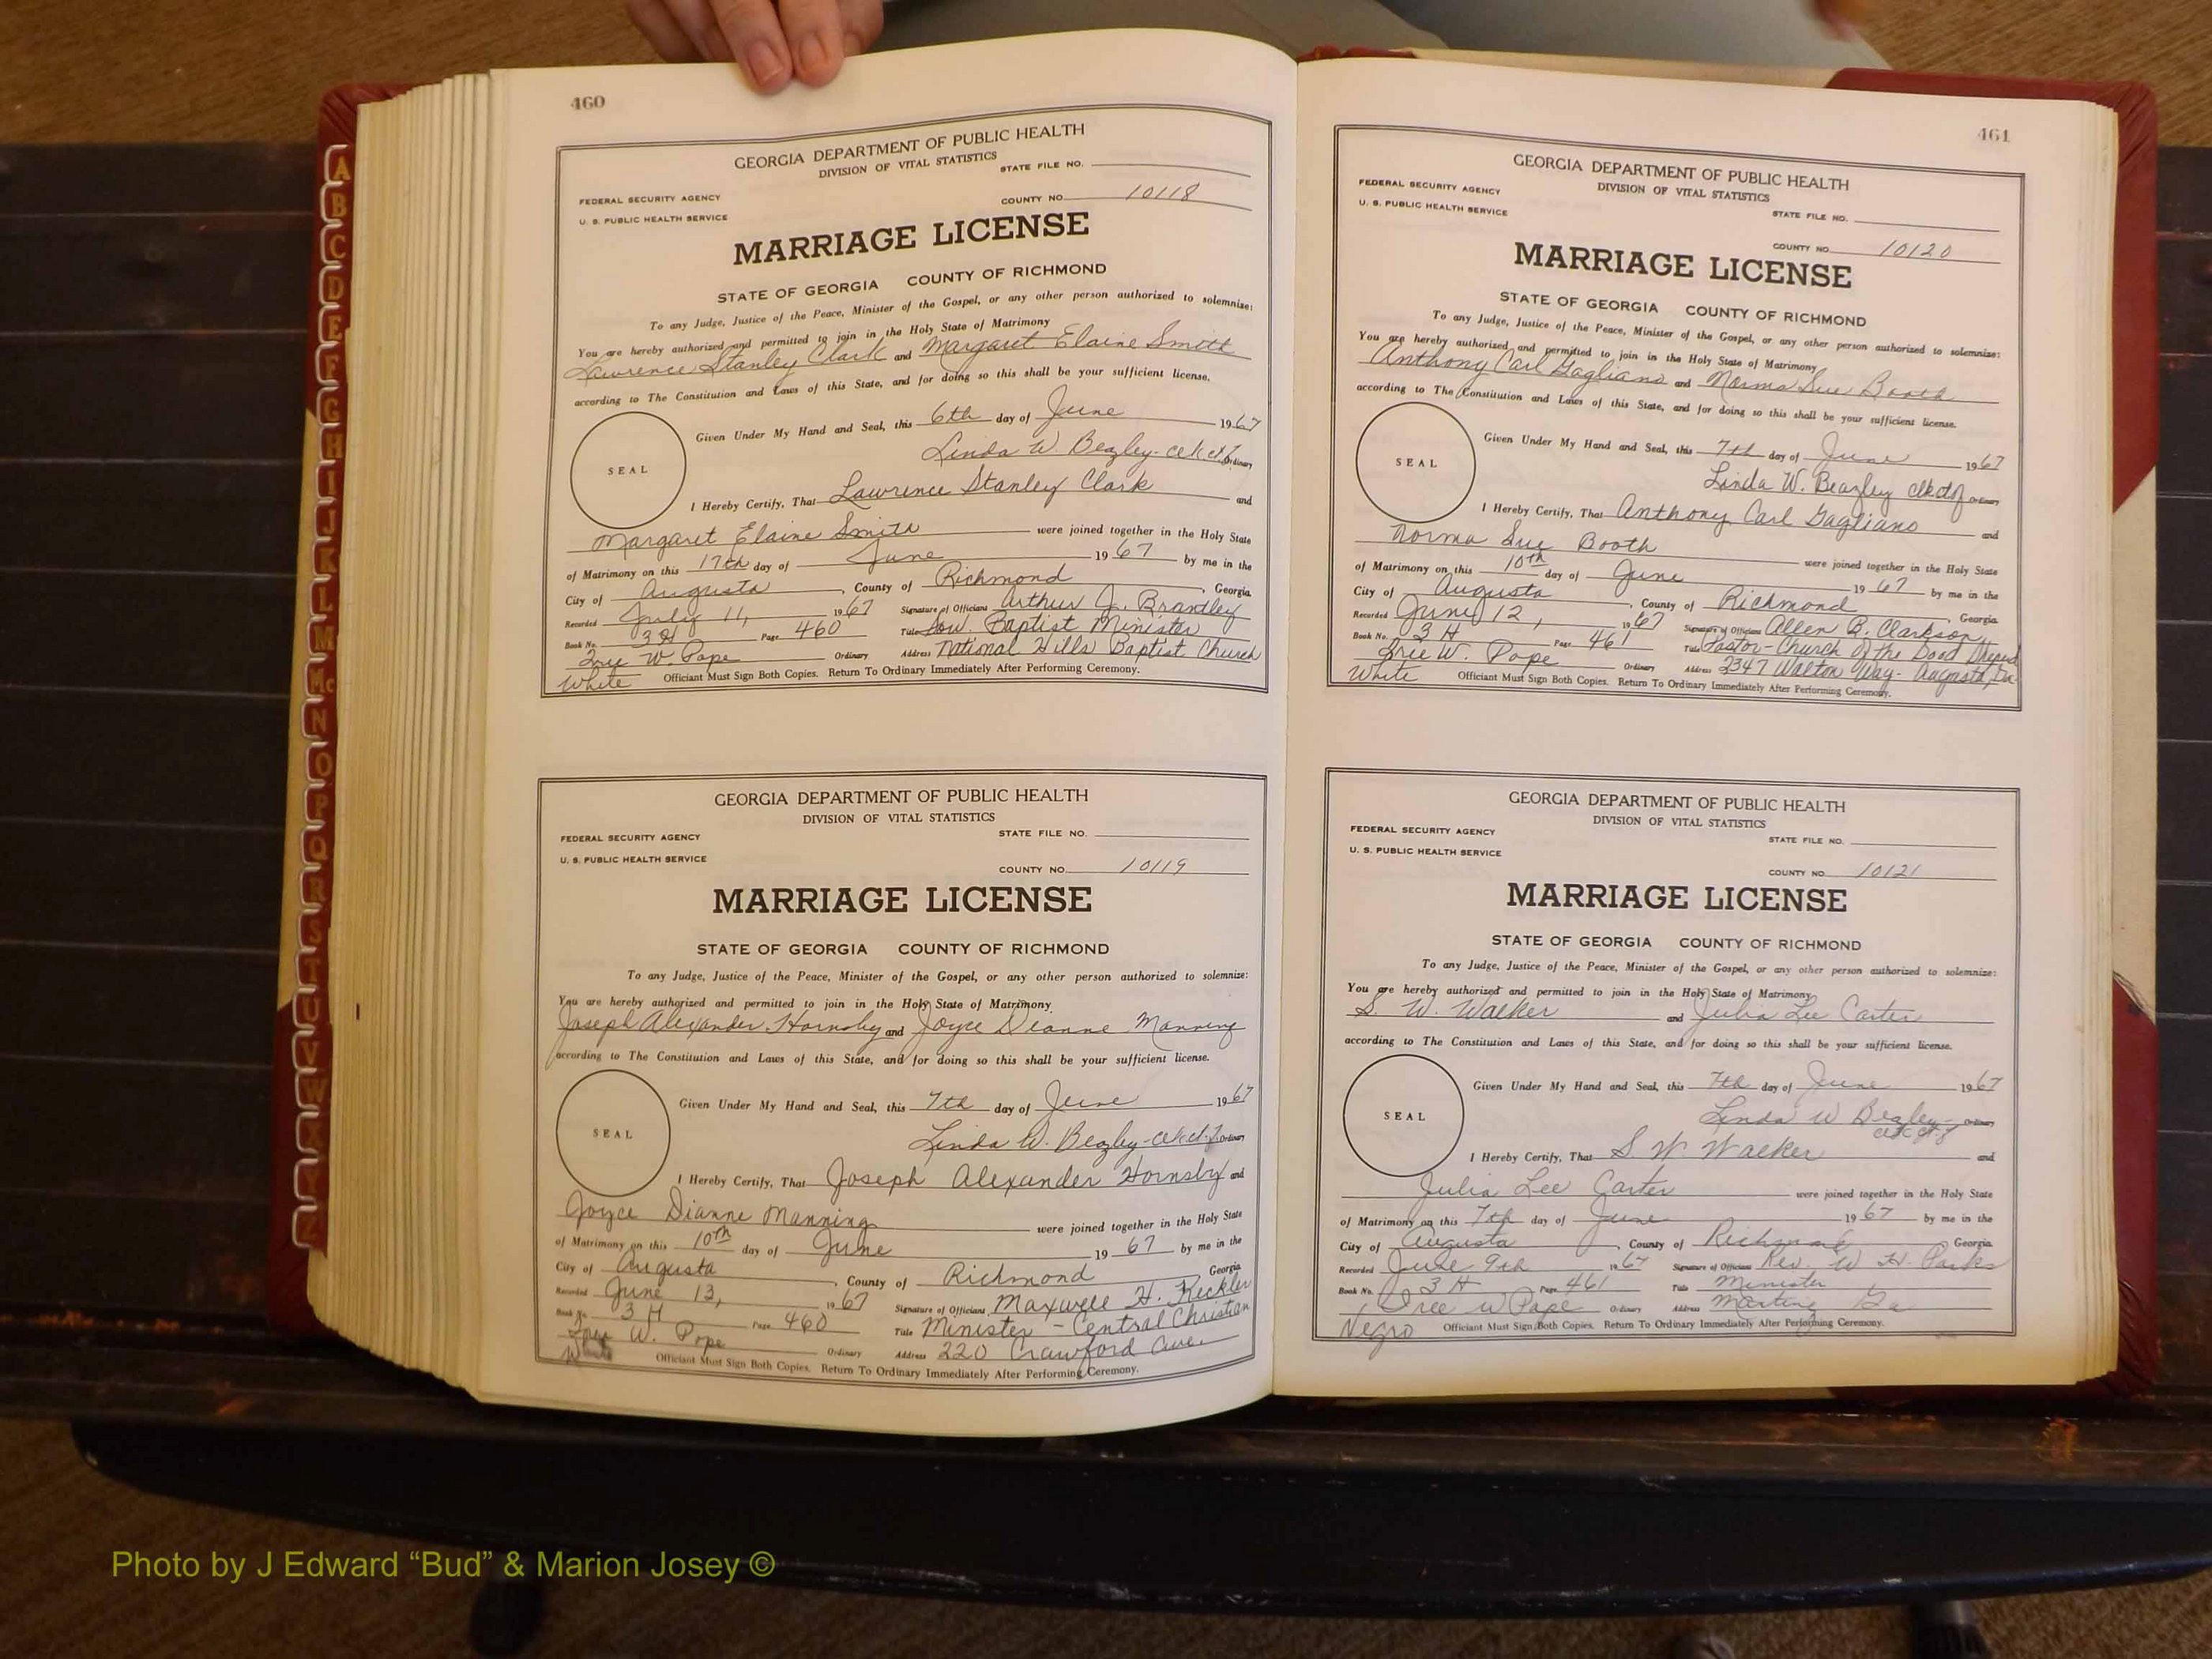 460
GEORGIA DEPARTMENT OF PUBLIC HEALTH
DIVISION OF VITAL STATISTICS
STATE FILE NO.
FEDERAL SECURITY AGENCY
COUNTY NO. 10118
U. S. PUBLIC HEALTH SERVICE
MARRIAGE LICENSE
STATE OF GEORGIA COUNTY OF RICHMOND
To any Judge, Justice of the Peace, Minister of the Gospel, or any other person authorized to solemnize:
You are hereby authorized and permitted to join in the Holy State of Matrimony
Lawrence Stanley Clark and Margaret Elaine Smith
according to The Constitution and Laws of this State, and for doing so this shall be your sufficient license.
SEAL
Given Under My Hand and Seal, this 6th day of June 1967
Linda W. Beazley Ordinary
I Hereby Certify, That Lawrence Stanley Clark and
Margaret Elaine Smith were joined together in the Holy State
of Matrimony on this 17th day of June 1967 by me in the
City of Augusta, County of Richmond, Georgia
Recorded July 11, 1967 Signature of Officiant Arthur J. Brantley
Book No. 3 H Page 460 Title Sou. Baptist Minister
W. Pope Ordinary Address National Hills Baptist Church
White Officiant Must Sign Both Copies. Return To Ordinary Immediately After Performing Ceremony.
GEORGIA DEPARTMENT OF PUBLIC HEALTH
DIVISION OF VITAL STATISTICS
FEDERAL SECURITY AGENCY
STATE FILE NO.
U. S. PUBLIC HEALTH SERVICE
COUNTY NO. 10119
MARRIAGE LICENSE
STATE OF GEORGIA COUNTY OF RICHMOND
To any Judge, Justice of the Peace, Minister of the Gospel, or any other person authorized to solemnize:
You are hereby authorized and permitted to join in the Holy State of Matrimony
Joseph Alexander Hornsby and Joyce Dianne Manning
according to The Constitution and Laws of this State, and for doing so this shall be your sufficient license.
SEAL
Given Under My Hand and Seal, this 7th day of June 1967
Linda W. Beazley Ordinary
I Hereby Certify, That Joseph Alexander Hornsby and
Joyce Dianne Manning were joined together in the Holy State
of Matrimony on this 10th day of June 1967 by me in the
City of Augusta, County of Richmond Georgia
Recorded June 13, 1967 Signature of Officiant Maxwell H.
Book No. 3 H Page 460 Title Minister - Central Christian
W. Pope Ordinary Address 220 Crawford Ave.
White Officiant Must Sign Both Copies. Return To Ordinary Immediately After Performing Ceremony.
461
GEORGIA DEPARTMENT OF PUBLIC HEALTH
DIVISION OF VITAL STATISTICS
FEDERAL SECURITY AGENCY
STATE FILE NO.
U. S. PUBLIC HEALTH SERVICE
COUNTY NO. 10120
MARRIAGE LICENSE
STATE OF GEORGIA COUNTY OF RICHMOND
To any Judge, Justice of the Peace, Minister of the Gospel, or any other person authorized to solemnize:
You are hereby authorized and permitted to join in the Holy State of Matrimony
Anthony Carl Gagliano and Norma Sue Booth
according to The Constitution and Laws of this State, and for doing so this shall be your sufficient license.
SEAL
Given Under My Hand and Seal, this 7th day of June 1967
Linda W. Beazley Ordinary
I Hereby Certify, That Anthony Carl Gagliano and
Norma Sue Booth were joined together in the Holy State
of Matrimony on this 10th day of June 1967 by me in the
City of Augusta, County of Richmond, Georgia
Recorded June 12, 1967 Signature of Officiant Allen B. Clarkson
Book No. 3 H Page 461 Title Pastor - Church of the Good
W. Pope Ordinary Address 2347 Walton Way - Augusta, Ga.
White Officiant Must Sign Both Copies. Return To Ordinary Immediately After Performing Ceremony.
GEORGIA DEPARTMENT OF PUBLIC HEALTH
DIVISION OF VITAL STATISTICS
FEDERAL SECURITY AGENCY
STATE FILE NO.
U. S. PUBLIC HEALTH SERVICE
COUNTY NO. 10121
MARRIAGE LICENSE
STATE OF GEORGIA COUNTY OF RICHMOND
To any Judge, Justice of the Peace, Minister of the Gospel, or any other person authorized to solemnize:
You are hereby authorized and permitted to join in the Holy State of Matrimony
S. W. Walker and Julia Lee Carter
according to The Constitution and Laws of this State, and for doing so this shall be your sufficient license.
SEAL
Given Under My Hand and Seal, this 7th day of June 1967
Linda W Beazley Ordinary
I Hereby Certify, That S. W. Walker and
Julia Lee Carter were joined together in the Holy State
of Matrimony on this 7th day of June 1967 by me in the
City of Augusta, County of Richmond, Georgia
Recorded June 9th 1967 Signature of Officiant Rev. W. H. Parks
Book No. 3 H Page 461 Title Minister
W Pope Ordinary Address Ga
Negro Officiant Must Sign Both Copies. Return To Ordinary Immediately After Performing Ceremony.
A
B
C
D
E
F
G
H
I
J
K
L
M
Mc
N
O
P
Q
R
S
T
U
V
W
X
Y
Z
Photo by J Edward “Bud” & Marion Josey ©